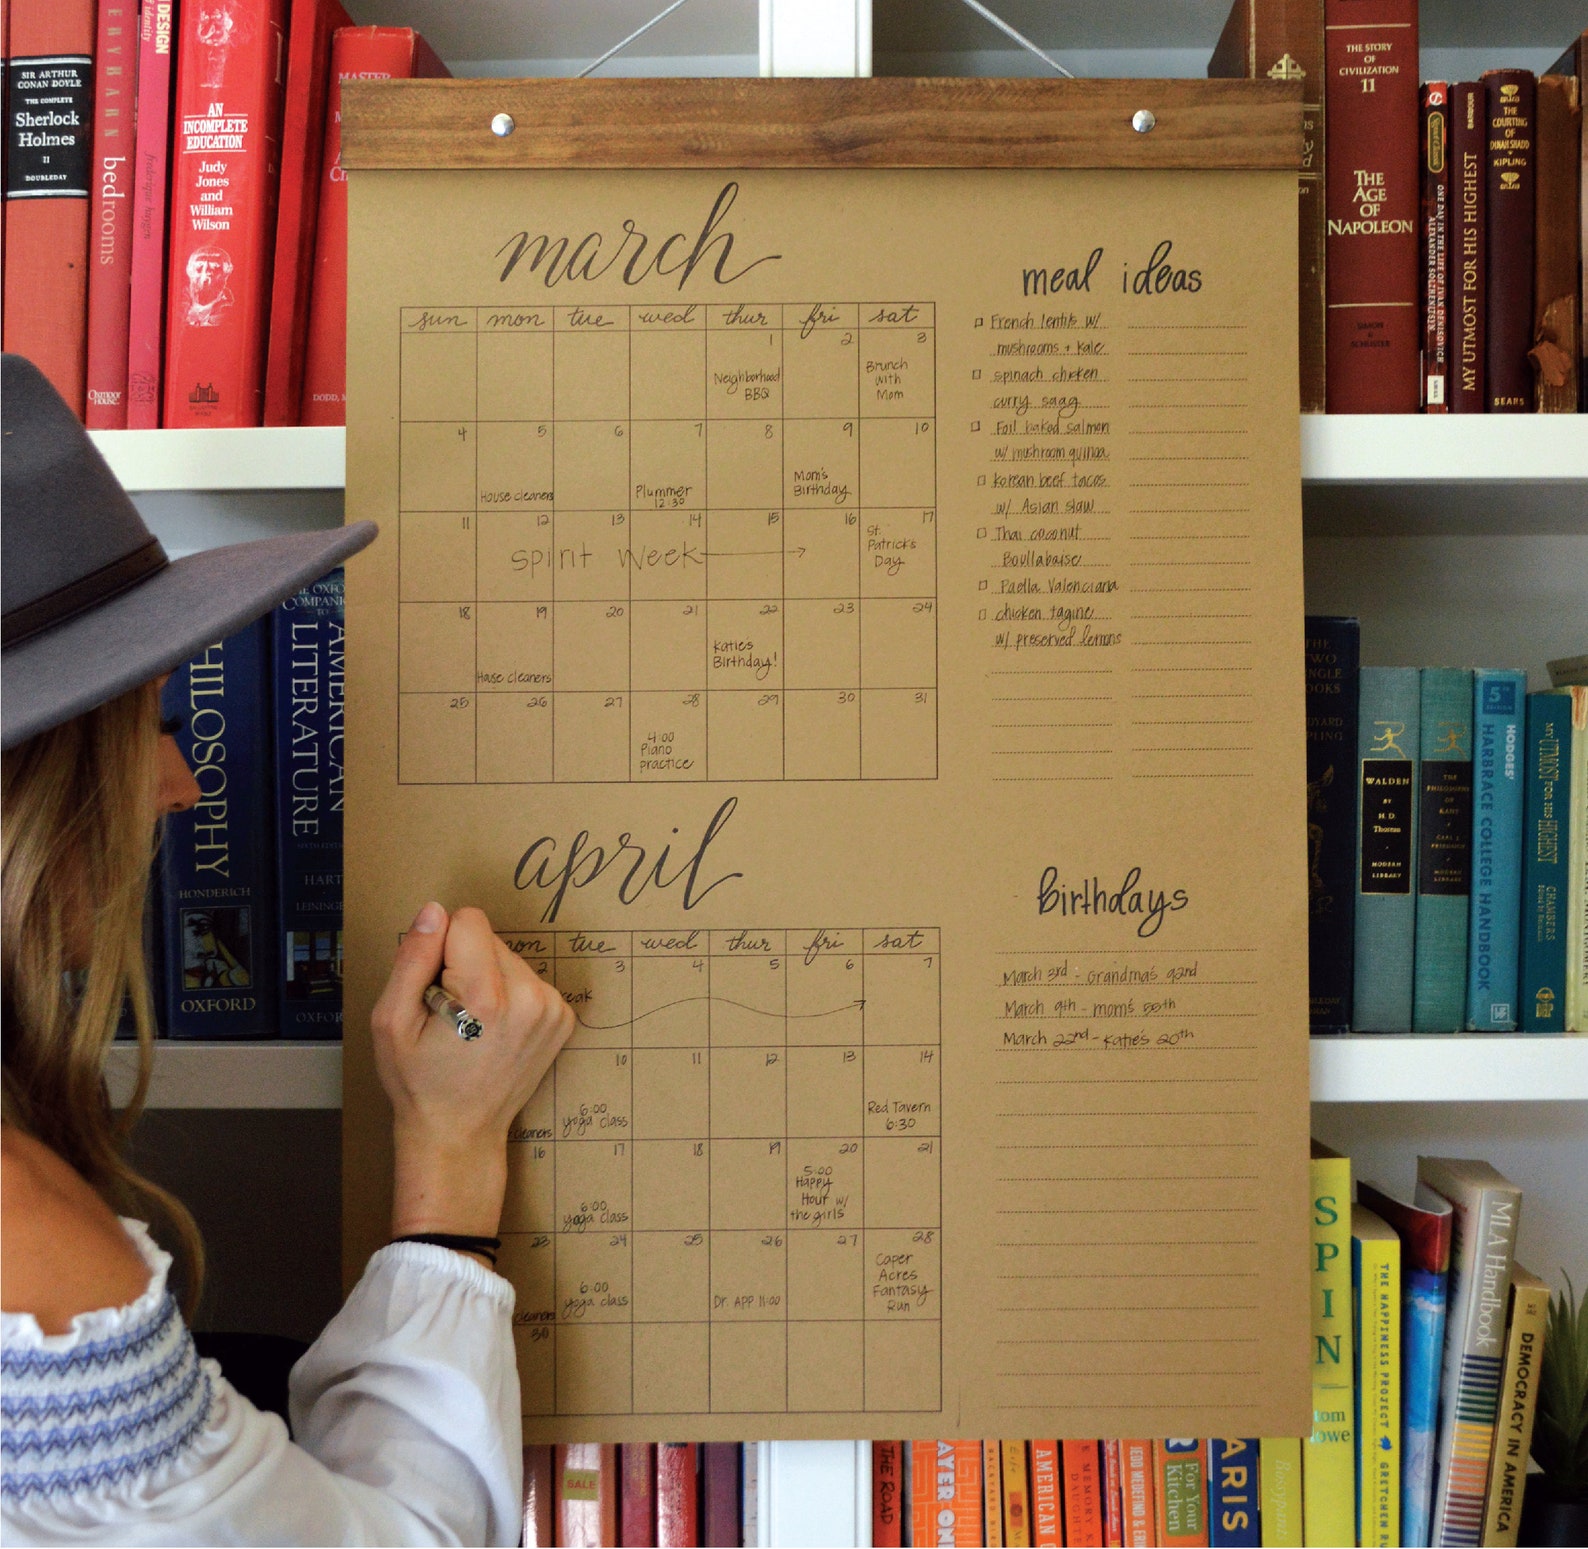 SIR ARTHUR
CONAN DOYLE
THE COMPLETE
Sherlock
Holmes
II
DOUBLEDAY
bedrooms
DESIGN
identity
frederique huygen
AN
INCOMPLETE
EDUCATION
Judy
Jones
and
William
Wilson
THE STORY
OF
CIVILIZATION
11
THE
AGE
OF
NAPOLEON
SIMON
&
SCHUSTER
Signet Classic
ONE DAY IN THE LIFE OF IVAN DENISOVICH
ALEXANDER SOLZHENITSYN
BARBOUR
MY UTMOST FOR HIS HIGHEST
THE
COURTING
OF
DINAH SHADD
KIPLING
SEARS
march
sun mon tue wed thur fri sat
1 2 3
Neighborhood
BBQ
Brunch
with
Mom
4 5 6 7 8 9 10
House cleaners
Plummer
12:30
Mom's
Birthday
11 12 13 14 15 16 17
Spirit Week
St.
Patrick's
Day
18 19 20 21 22 23 24
House cleaners
Katie's
Birthday!
25 26 27 28 29 30 31
4:00
Piano
practice
meal ideas
French lentils w/
mushrooms + kale
spinach chicken
curry saag
Foil baked salmon
w/ mushroom quinoa
Korean beef tacos
w/ Asian slaw
Thai coconut
Boullabaise
Paella Valenciana
chicken tagine
w/ preserved lemons
april
mon tue wed thur fri sat
2 3 4 5 6 7
reak
10 11 12 13 14
cleaners
6:00
yoga class
Red Tavern
6:30
16 17 18 19 20 21
6:00
yoga class
5:00
Happy
Hour w/
the girls
23 24 25 26 27 28
cleaners
6:00
yoga class
Dr. APP 11:00
Caper
Acres
Fantasy
Run
30
birthdays
March 3rd - Grandma's 92nd
March 9th - mom's 55th
March 22nd - Katie's 20th
PHILOSOPHY
HONDERICH
OXFORD
THE OXFORD
COMPANION
TO
AMERICAN
LITERATURE
HART
LEININGER
OXFORD
WALDEN
BY
H.D.
Thoreau
MODERN
LIBRARY
THE
PHILOSOPHY
OF
KANT
CARL J.
FRIEDRICH
MODERN
LIBRARY
5th
EDITION
HODGES'
HARBRACE COLLEGE HANDBOOK
MY UTMOST FOR HIS HIGHEST
CHAMBERS
SPIN
THE HAPPINESS PROJECT
GRETCHEN RU
MLA Handbook
DEMOCRACY IN AMERICA
SALE
THE ROAD
AYER ON
AMERICAN
JEDD MEDEFIND &
For Your
Kitchen
ARIS